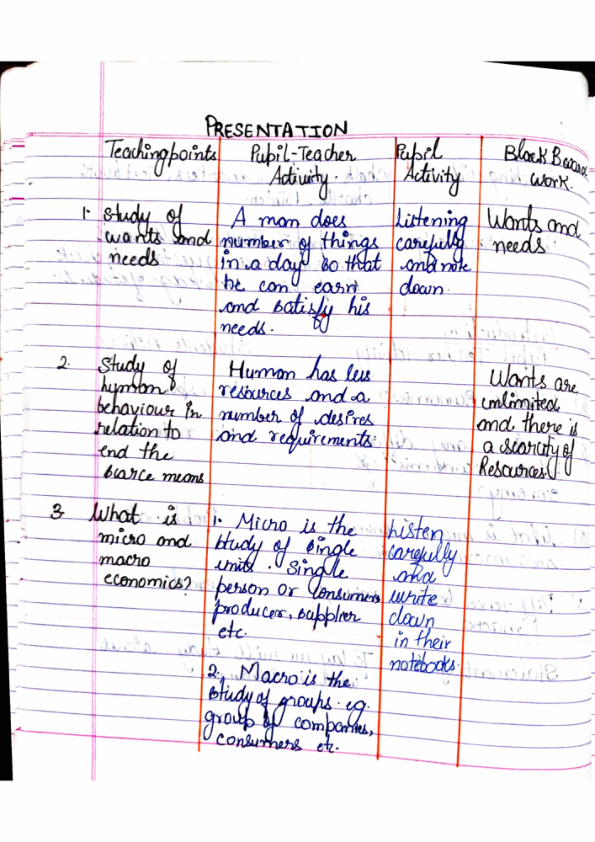 PRESENTATION
Teaching points
Pupil-Teacher
Activity.
Pupil
Activity
Black Board
work.
1. Study of
wants and
needs
A man does
number of things
in a day so that
he can earn
and satisfy his
needs.
Listening
carefully
and note
down.
Wants and
needs
2. Study of
human
behaviour in
relation to
end the
scarce means
Human has less
resources and a
number of desires
and requirements.
Wants are
unlimited
and there is
a scarcity of
Resources
3. What is
micro and
macro
economics?
1. Micro is the
study of single
units. Single
person or consumers
producer, supplier
etc.
2. Macro is the
study of groups. eg.
group of companies,
consumers etc.
Listen
carefully
and
write
down
in their
notebooks.